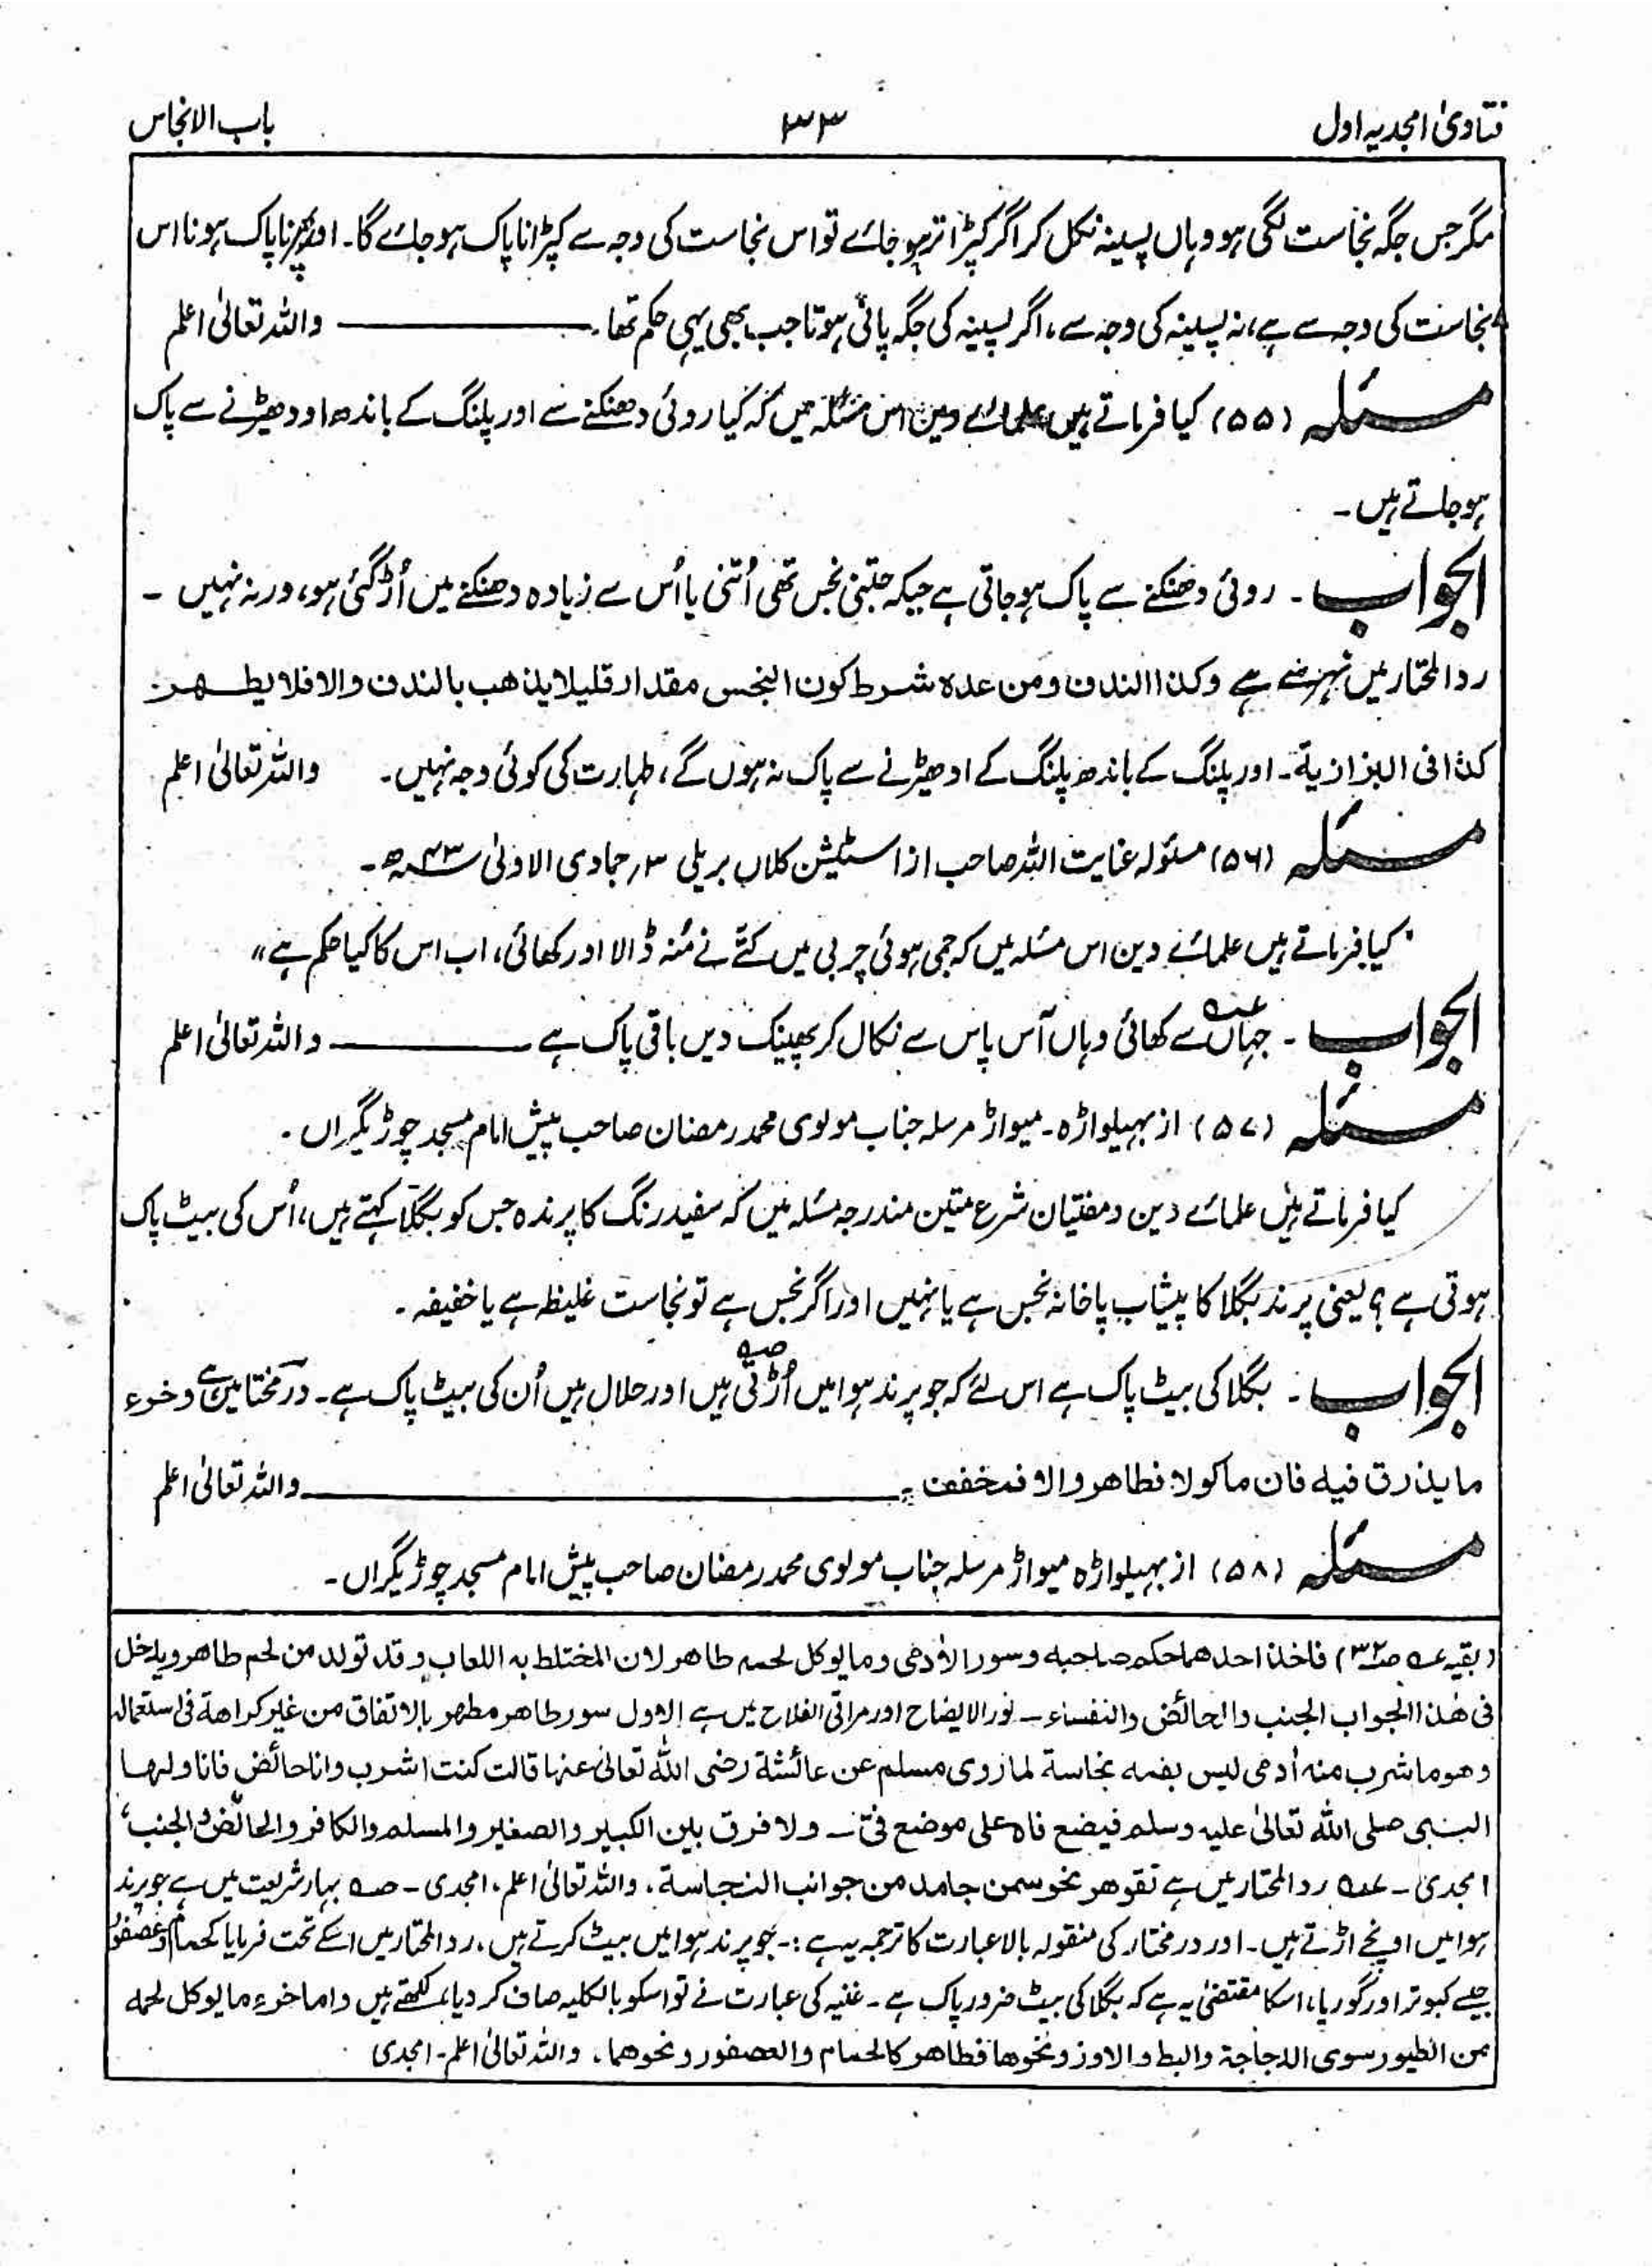 فتاویٰ امجدیہ اول ۳۳ باب الانجاس
مگر جس جگہ نجاست لگی ہو وہاں پسینہ نکل کر اگر کپڑا تر ہو جائے تو اس نجاست کی وجہ سے کپڑا ناپاک ہو جائے گا۔ ناپاک ہونا اس
نجاست کی وجہ سے ہے، نہ پسینہ کی وجہ سے، اگر پسینہ کی جگہ پانی ہوتا جب بھی یہی حکم تھا۔ واللہ تعالیٰ اعلم
مسئلہ (۵۵) کیا فرماتے ہیں علمائے دین اس مسئلہ میں کہ کیا روئی دھنکنے سے اور پلنگ کے باندھ اودھیڑنے سے پاک
ہو جاتے ہیں۔
الجواب ۔ روئی دھنکنے سے پاک ہو جاتی ہے جبکہ جتنی نجس تھی اُتنی یا اُس سے زیادہ دھنکنے میں اُڑ گئی ہو، ورنہ نہیں ۔
ردالمحتار میں نہر سے ہے وکذا الندف ومن عدہ شرط کون النجس مقدار قلیلا یذھب بالندف والا فلا یطھر
کذا فی البزازیة۔ اور پلنگ کے باندھ پلنگ کے ادھیڑنے سے پاک نہ ہوں گے، طہارت کی کوئی وجہ نہیں۔ واللہ تعالیٰ اعلم
مسئلہ (۵۶) مسئولہ عنایت اللہ صاحب از اسٹیشن کلاں بریلی ۳؍ جمادی الاولیٰ ۴۳ھ۔
کیا فرماتے ہیں علمائے دین اس مسئلہ میں کہ جمی ہوئی چربی میں کتے نے مُنہ ڈالا اور کھائی، اب اس کا کیا حکم ہے"
الجواب ۔ جہاں عہ سے کھائی وہاں آس پاس سے نکال کر پھینک دیں باقی پاک ہے واللہ تعالیٰ اعلم
مسئلہ (۵۷) از بہیلواڑہ۔ میواڑ مرسلہ جناب مولوی محمد رمضان صاحب پیش امام مسجد چوڑیگراں ۔
کیا فرماتے ہیں علمائے دین و مفتیان شرع متین مندرجہ مسئلہ میں کہ سفید رنگ کا پرندہ جس کو بگلا کہتے ہیں، اُس کی بیٹ پاک
ہوتی ہے؟ یعنی پرند بگلا کا پیشاب پاخانہ نجس ہے یا نہیں اور اگر نجس ہے تو نجاست غلیظہ ہے یا خفیفہ ۔
الجواب ۔ بگلا کی بیٹ پاک ہے اس لئے کہ جو پرند ہوا میں اُڑتی صہ ہیں اور حلال ہیں اُن کی بیٹ پاک ہے۔ درمختار میں ہے وخرء
ما یذرق فیه فان ماکولا فطاھر والا فمخفف ۔ واللہ تعالیٰ اعلم
مسئلہ (۵۸) از بہیلواڑہ میواڑ مرسلہ جناب مولوی محمد رمضان صاحب پیش امام مسجد چوڑیگراں ۔
(بقیہ عہ صـ۳۲) فاخذ احدھما حکم صاحبه وسور الاٰدمی وما یوکل لحمه طاھر لان المختلط به اللعاب وقد تولد من لحم طاھر ویدخل
فی ھٰذا الجواب الجنب والحائض والنفساء ــ نور الایضاح اور مراقی الفلاح میں ہے الاول سور طاھر مطھر بالاتفاق من غیر کراھة فی استعماله
وھو ما شرب منه اٰدمی لیس بفمه نجاسة لما رویٰ مسلم عن عائشة رضی اللہ تعالیٰ عنہا قالت کنت اشرب وانا حائض فاناولہ
النبی صلی اللہ تعالیٰ علیہ وسلم فیضع فاہ علی موضع فیّ ــ ولا فرق بین الکبیر والصغیر والمسلم والکافر والحائض والجنب،
امجدی ــ عہ ردالمحتار میں ہے تقوھر نحو سمن جامد من جوانب النجاسة، واللہ تعالیٰ اعلم، امجدی ــ صہ بہار شریعت میں ہے جو پرند
ہوا میں اونچے اڑتے ہیں۔ اور درمختار کی منقولہ بالا عبارت کا ترجمہ یہ ہے:۔ جو پرند ہوا میں بیٹ کرتے ہیں، ردالمحتار میں اسکے تحت فرمایا کحمام وعصفور
جیسے کبوتر اور گوریا، اسکا مقتضیٰ یہ ہے کہ بگلا کی بیٹ ضرور پاک ہے۔ غنیہ کی عبارت نے تو اسکو بالکلیہ صاف کر دیا، لکھتے ہیں واما خرء ما یوکل لحمه
من الطیور سوی الدجاجة والبط والاوز ونحوھا فطاھر کالحمام والعصفور ونحوھما، واللہ تعالیٰ اعلم۔ امجدی